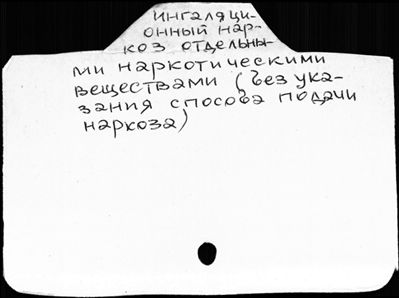 Ингаляци-
онный нар-
коз отдельны-
ми наркотическими
веществами (без ука-
зания способа подачи
наркоза)